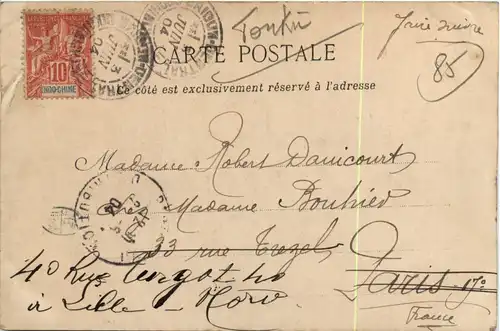 Tonkin
Faire suivre
85
CARTE POSTALE
Ce côté est exclusivement réservé à l'adresse
10
INDO-CHINE
JUIN
04
Madame Robert Danicourt
Chez Madame Bouhier
33 rue Trezel
40 Rue Turgot 40
Paris 17e
à Lille - Nord
France